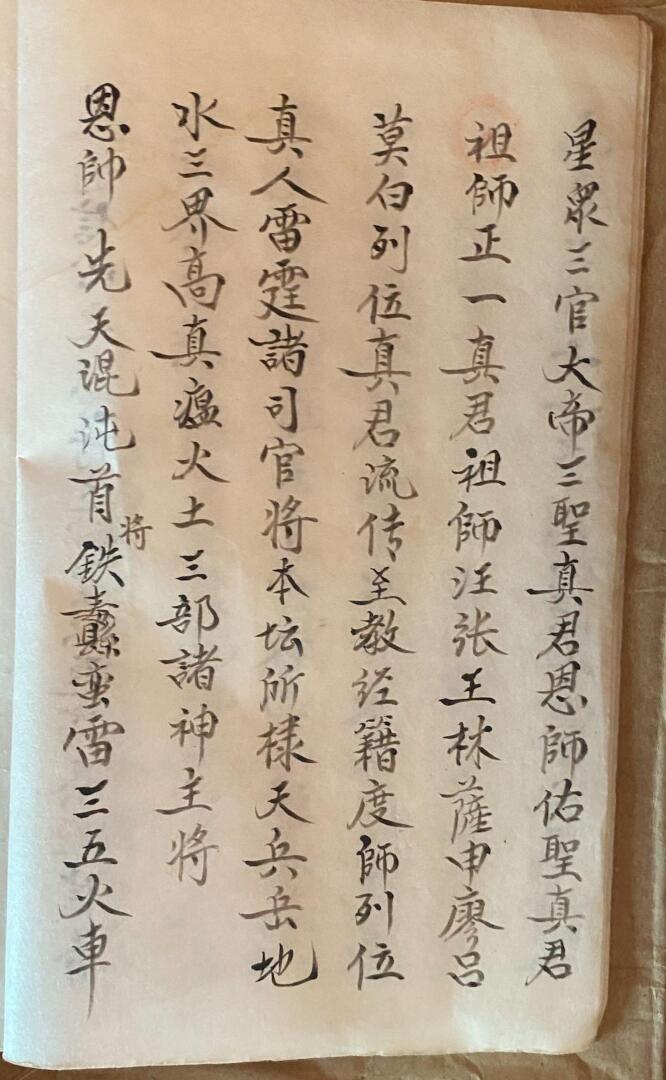 星眾三官大帝三聖真君恩師佑聖真君
祖師正一真君祖師汪张王林薩申廖吕
莫白列位真君流传至教经籍度師列位
真人雷霆諸司官将本坛所棣天兵岳地
水三界高真瘟火土三部諸神主将
恩帥先天混沌首将鉄纛蛮雷三五火車